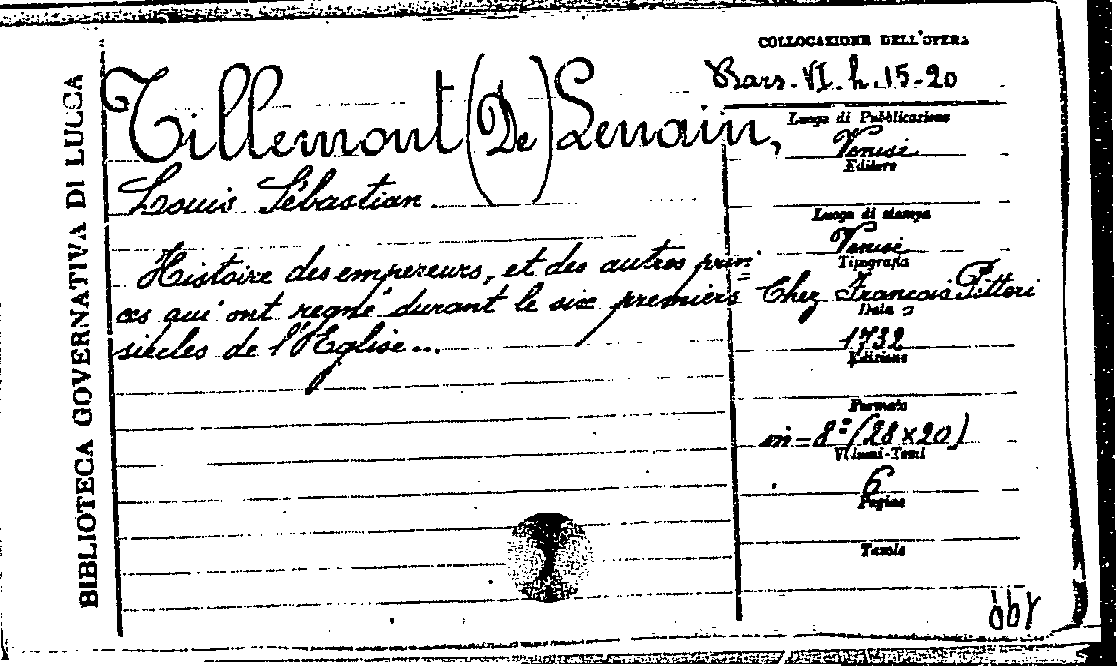 BIBLIOTECA GOVERNATIVA DI LUCCA
Tillemont (De) Lenain,
Louis Sébastian
Histoire des empereurs, et des autres prin=
ces qui ont regné durant le six premiers
siècles de l'Eglise...
COLLOCAZIONE DELL'OPERA
VI. h. 15-20
Luogo di Pubblicazione
Venise
Editore
Luogo di stampa
Venise
Tipografia
Chez Francois Pitteri
Data
1732
Edizione
Formato
in-8º (28×20)
Volumi-Tomi
6
Pagine
Tavole